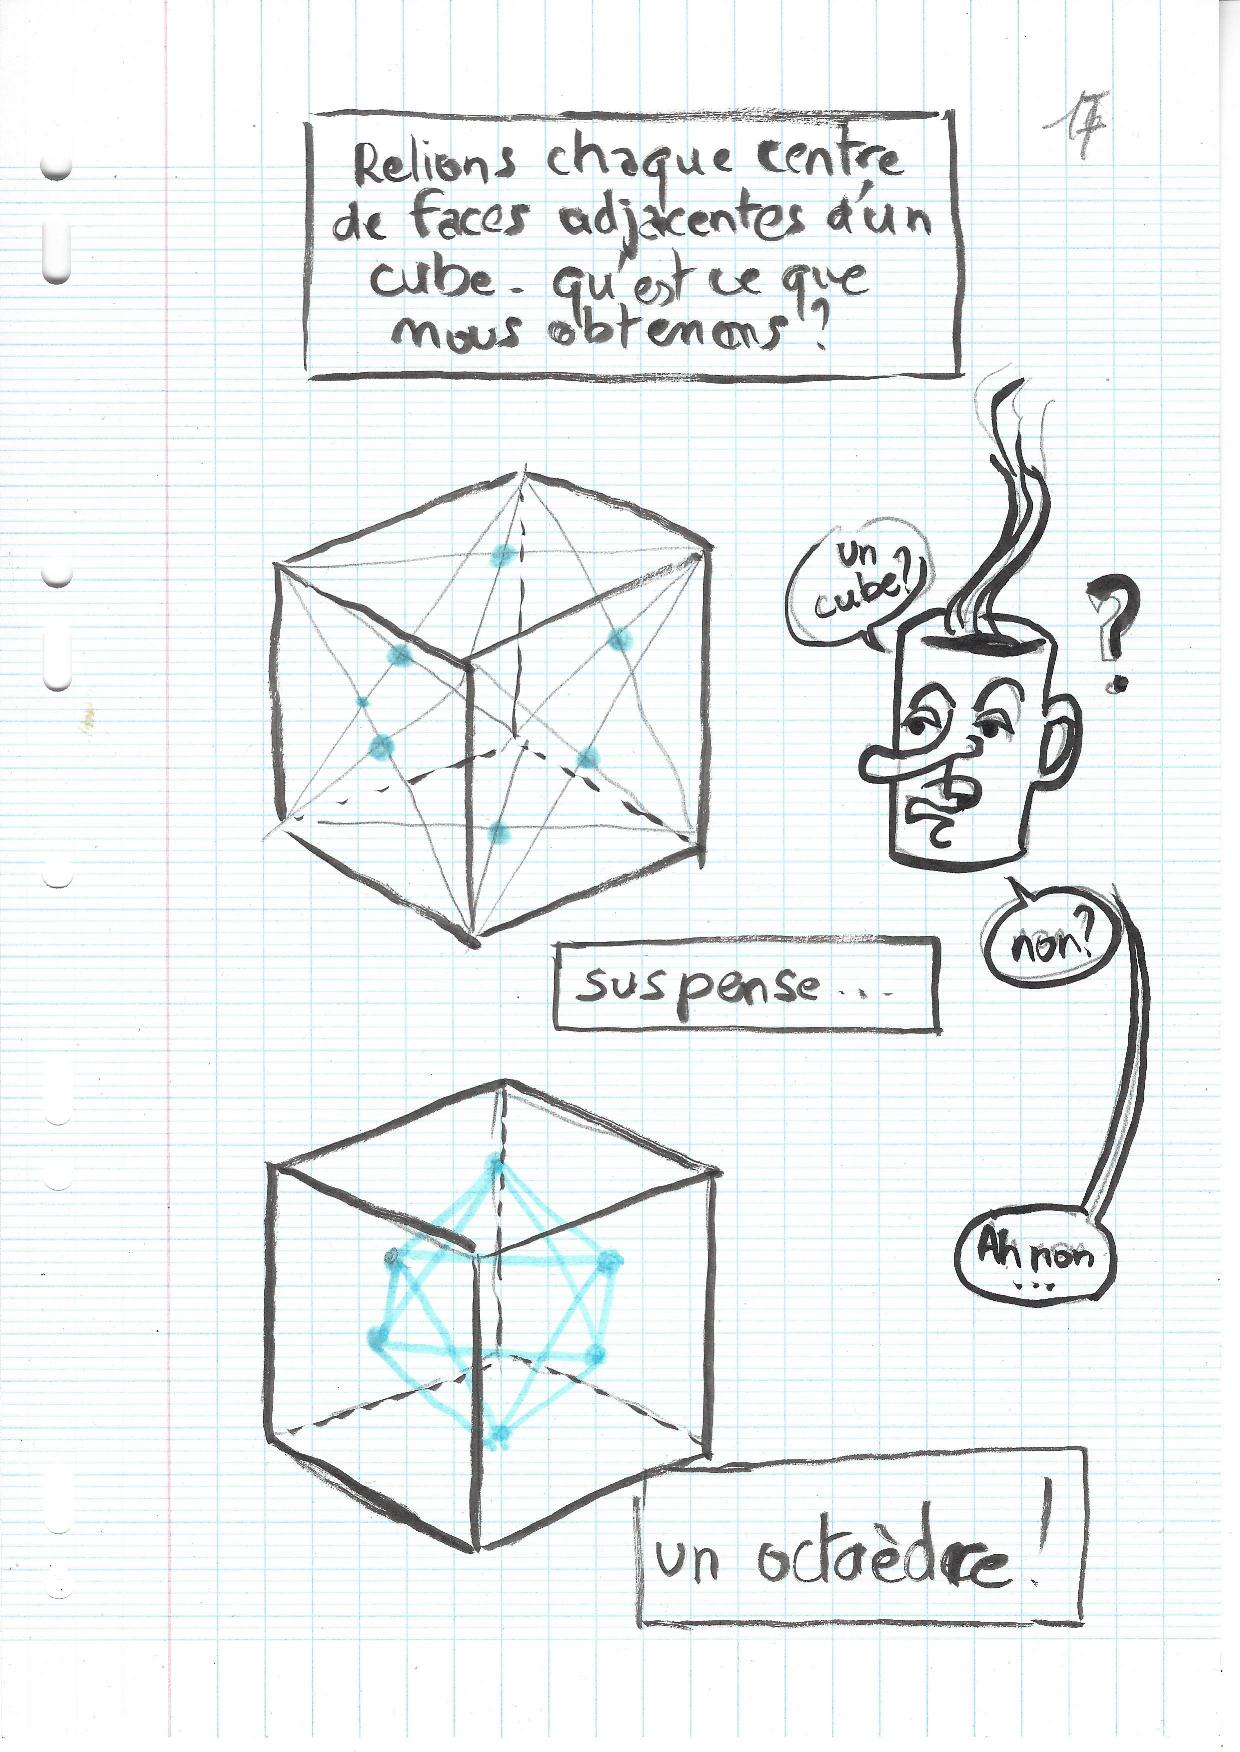 17
Relions chaque centre
de faces adjacentes d'un
cube. qu'est ce que
nous obtenons ?
un
cube?
?
non?
suspense...
Ah non
...
un octaèdre !